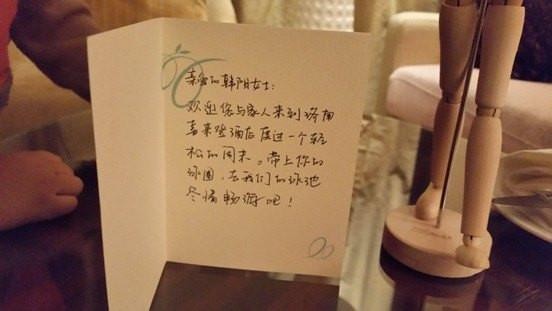 亲爱的韩阳女士:
欢迎您与家人来到
喜来登酒店度过一个轻
松的周末。带上你的
泳圈,在我们的泳池
尽情畅游吧!